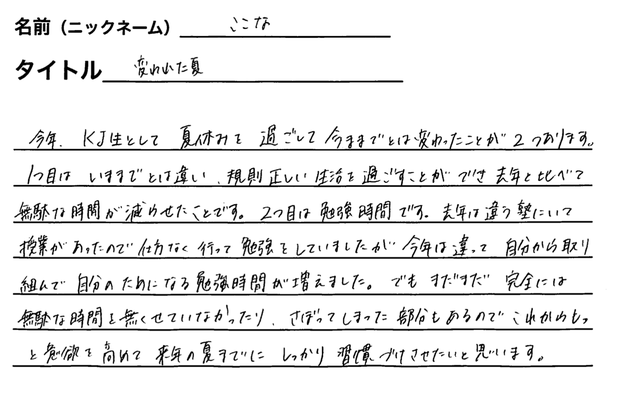 名前（ニックネーム） ここな
タイトル 変われた夏
今年、KJ生として 夏休みを 過ごして 今までとは変わったことが 2つあります。
1つ目は いままでとは違い、規則正しい 生活を過ごすことが でき 去年と比べて
無駄な時間が減らせたことです。2つ目は 勉強時間です。去年は違う塾にいて
授業があったので仕方なく 行って勉強をしていましたが 今年は違って 自分から取り
組んで 自分のためになる勉強時間が増えました。でも まだまだ 完全には
無駄な時間を無くせていなかったり、さぼってしまった 部分もあるので これからもっ
と意欲を高めて 来年の夏までに しっかり 習慣づけさせたいと思います。